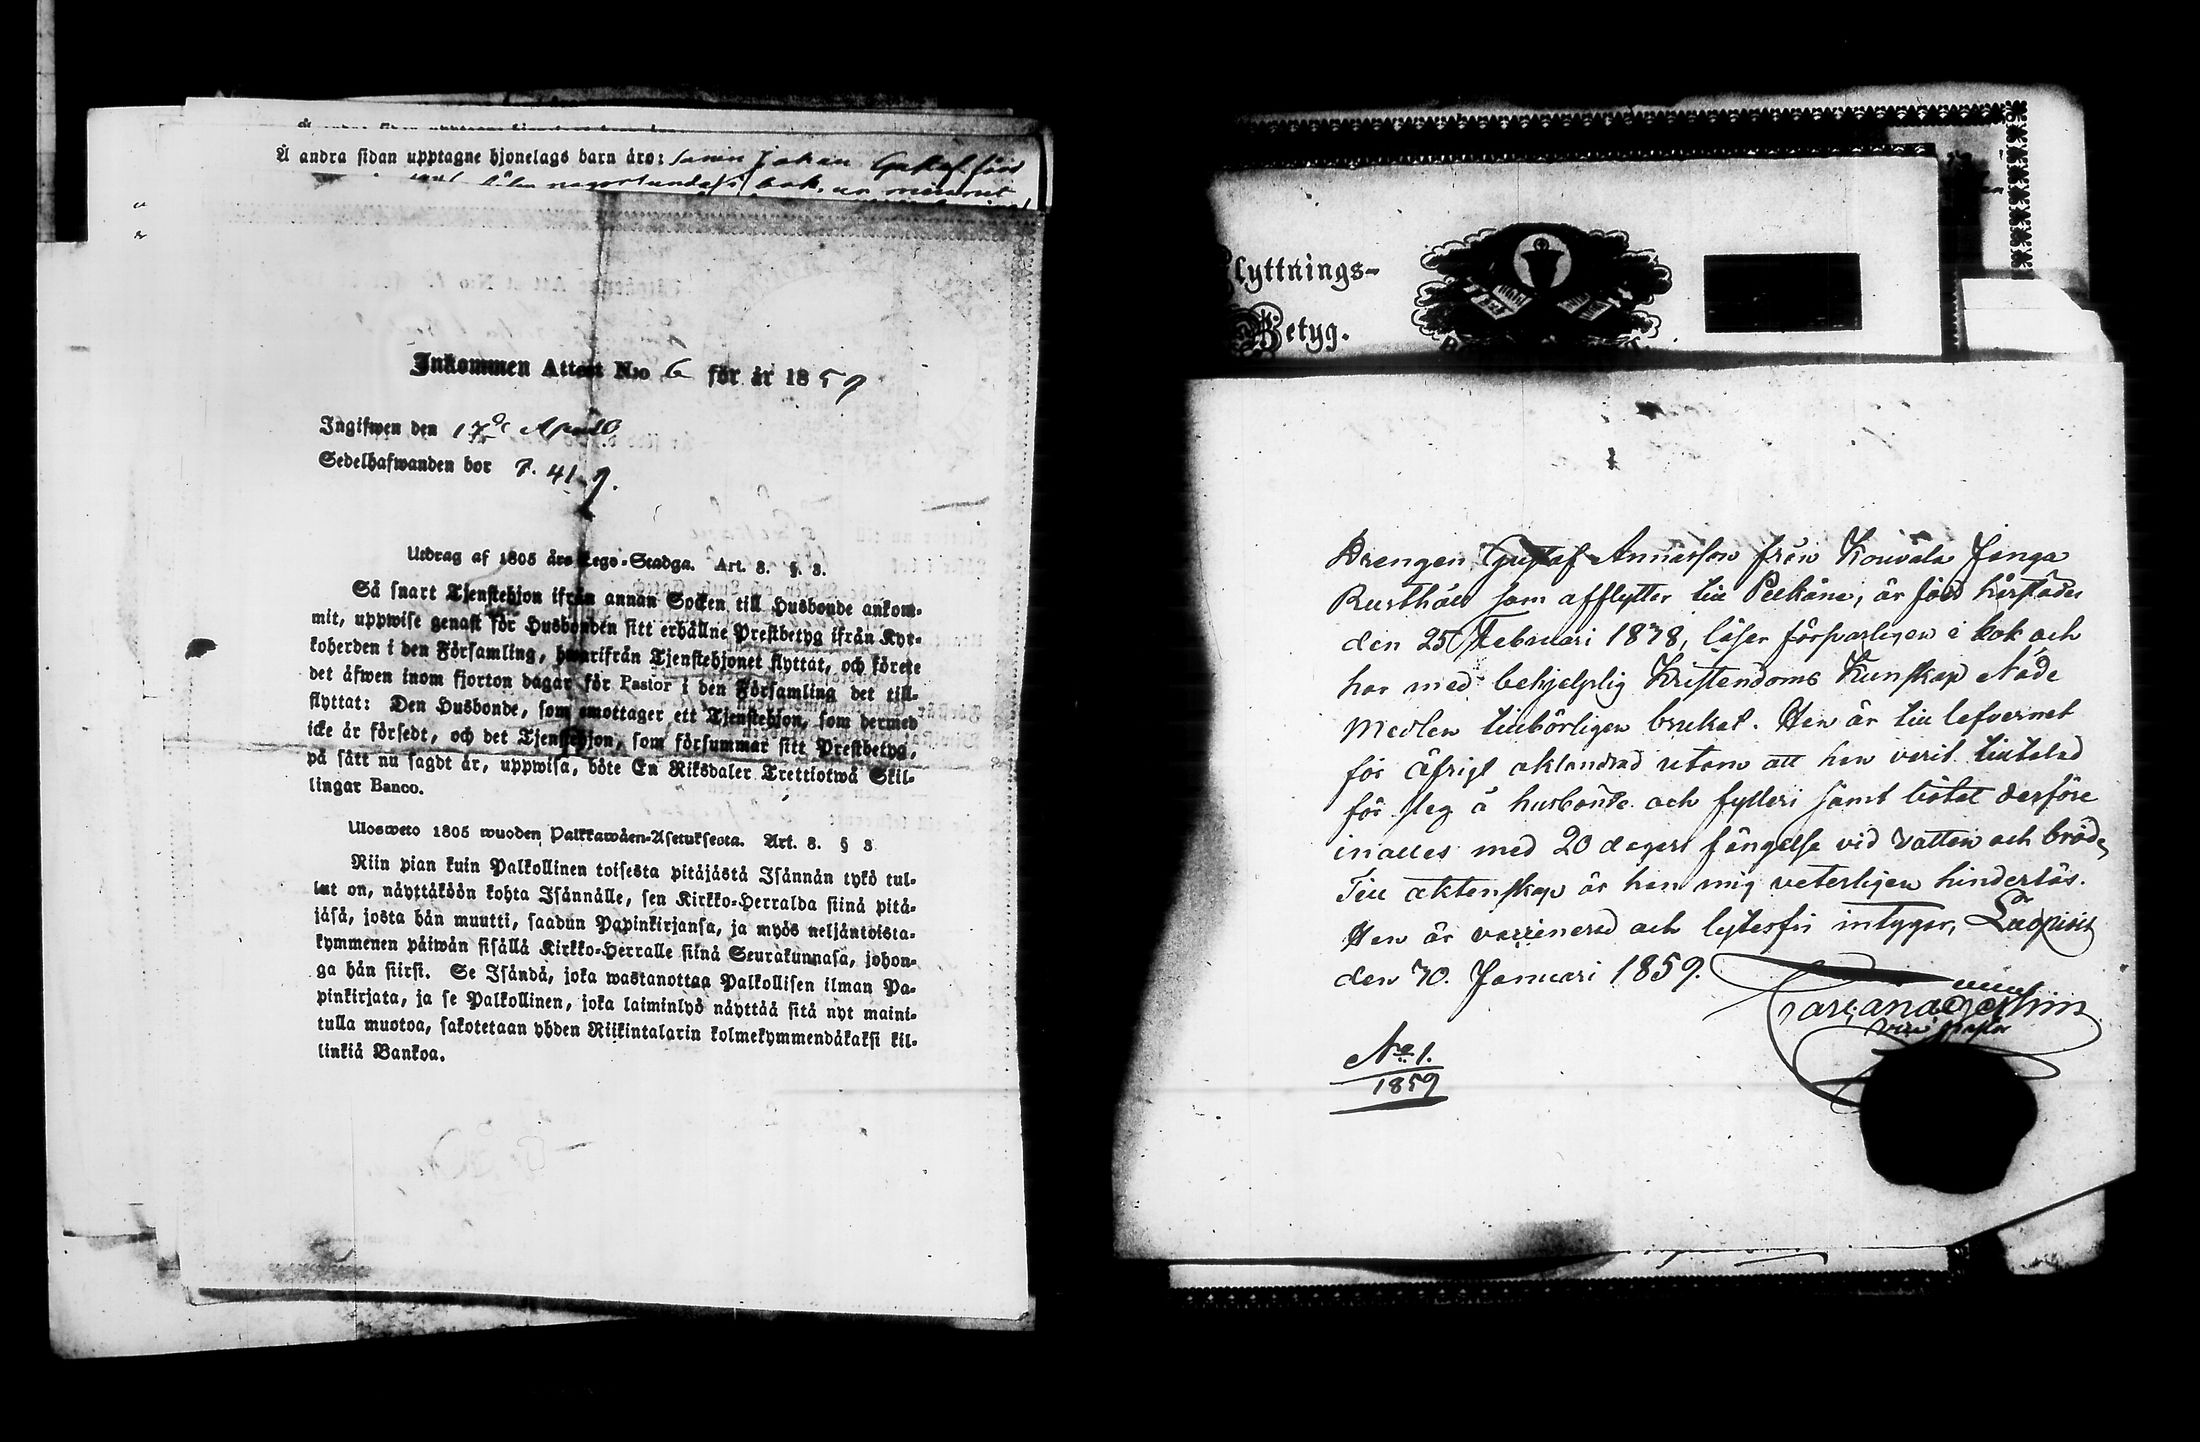 Å andra sidan upptagne hjonelags barn äro: sonen Johan Gustaf född
Inkommen Attest N:o 6 för år 1859
Ingifwen den 17de April
Sedelhafwanden bor P. 419.
Utdrag af 1805 års Lego-Stadga. Art. 8. § 3.
Så snart Tjenstehjon ifrån annan Socken till Husbonde ankom-
mit, uppwise genast för Husbonden sitt erhållne Prestbetyg ifrån Kyr-
koherden i den Församling, hwarifrån Tjenstehjonet flyttat, och förete
det äfwen inom fjorton dagar för Pastor i den Församling det till-
flyttat: Den Husbonde, som emottager ett Tjenstehjon, som dermed
icke är försedt, och det Tjenstehjon, som försummar sitt Prestbetyg,
på sätt nu sagdt är, uppwisa, böte En Riksdaler Trettiotwå Skil-
lingar Banco.
Ulosweto 1805 wuoden Palkkawäen-Asetuksesta. Art. 8. § 3
Niin pian kuin Palkollinen toisesta pitäjästä Isännän tykö tul-
lut on, näyttäköön kohta Isännälle, sen Kirkko-Herralda siinä pitä-
jäsä, josta hän muutti, saadun Papinkirjansa, ja myös neljäntoista-
kymmenen päiwän sisällä Kirkko-Herralle siinä Seurakunnasa, johon-
ga hän siirsi. Se Isändä, joka wastanottaa Palkollisen ilman Pa-
pinkirjata, ja se Palkollinen, joka laiminlyö näyttää sitä nyt maini-
tulla muotoa, sakotetaan yhden Riikintalarin kolmekymmendäkaksi kil-
linkiä Bankoa.
Flyttnings-
Betyg.
Drengen Gustaf Annasson från Kouvala Janga
Rusthåll som afflytter till Pelkäne, är född härstädes
den 25 Februari 1838, läser försvarligen i bok och
har med behjelplig Kristendoms Kunskap Nåde
Medlen tillbörligen brukat. Han är till lefvernet
för öfrigt oklandrad utom att han varit tilltalad
för slag å husbonde och fylleri samt bötat derföre
inalles med 20 dagars fängelse vid vatten och bröd,
Till äktenskap är han mig veterligen hinderlös.
Han är vaccinerad och lytesfri intygar,
den 30. Januari 1859.
vice pastor
No 1.
1859